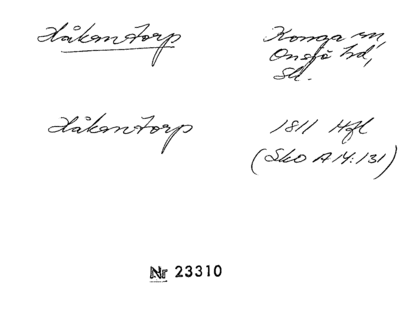 Håkantorp Konga sn,
Onsjö hd,
Sk.
Håkantorp 1811 Hfl
(Sko A 14:131)
Nr 23310